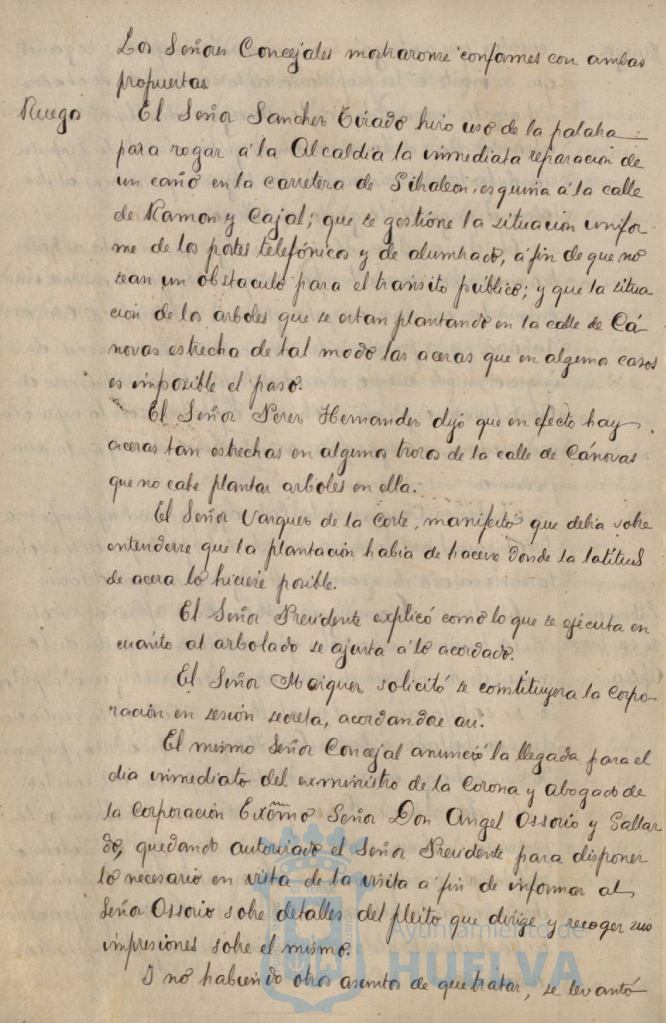 Los Señores Concejales mostraronse conformes con ambas
propuestas
Ruego
El Señor Sanchez Tirado hizo uso de la palabra
para rogar á la Alcaldia la inmediata reparación de
un caño en la carretera de Gibraleon, esquina á la calle
de Ramon y Cajal; que se gestione la situacion unifor-
me de los postes telefónicos y de alumbrado, á fin de que no
sean un obstaculo para el transito público; y que la situa
cion de los arboles que se estan plantando en la calle de Cá-
novas estrecha de tal modo las aceras que en algunos casos
es imposible el paso.
El Señor Perez Hernandez dijó que en efecto hay
aceras tan estrechas en algunos trozos de la calle de Cánovas
que no cabe plantar arboles en ella.
El Señor Vazquez de la Corte, manifestó que debia sobre
entenderse que la plantación habia de hacerse donde la latitud
de acera lo hiciese posible.
El Señor Presidente explicó como lo que se ejecuta en
cuanto al arbolado se ajusta á lo acordado.
El Señor Maiquez solicitó se constituyera la corpo-
ración en sesión secreta, acordandose asi.
El mismo Señor Concejal anunció la llegada para el
dia inmediato del exministro de la Corona y abogado de
la Corporación Excmo Señor Don Angel Ossorio y Gallar
do, quedando autorizado el Señor Presidente para disponer
lo necesario en vista de la visita a fin de informar al
Señor Ossorio sobre detalles del pleito que dirige y recoger sus
impresiones sobre el mismo.
I no habiendo otros asuntos de que tratar, se levantó
Ayuntamiento de
HUELVA